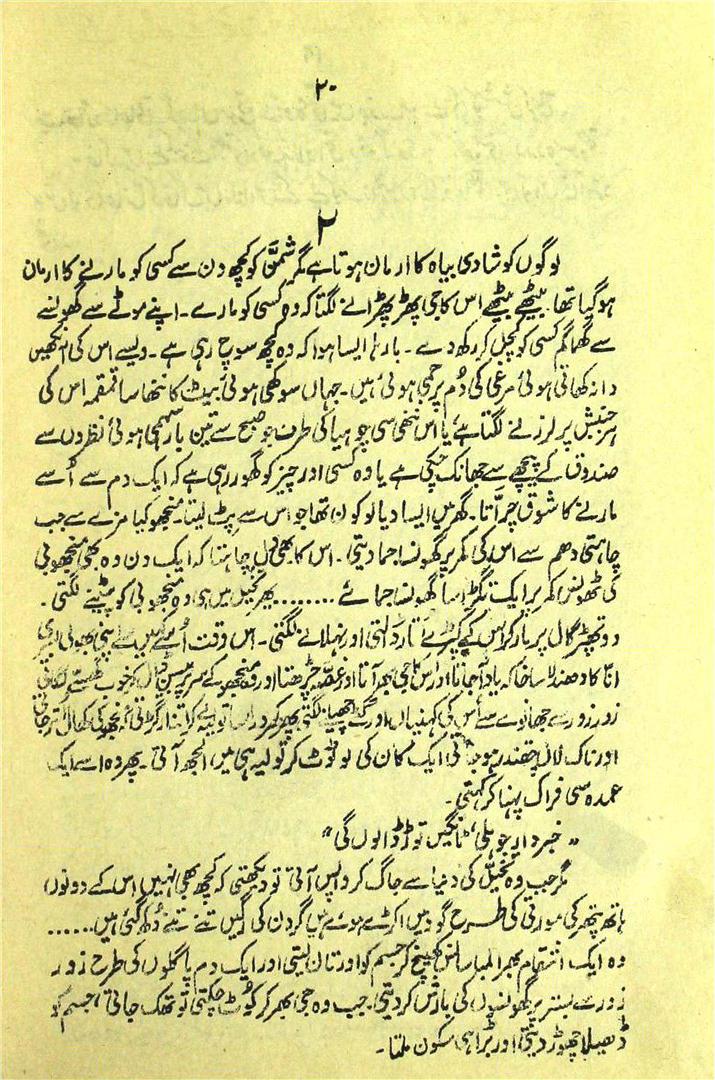 ۲۰
۲
لوگوں کو شادی بیاہ کا ارمان ہوتا ہے مگر شمّن کو کچھ دن سے کسی کو مارنے کا ارمان
ہو گیا تھا۔ بیٹھے بیٹھے اس کا جی پھڑپھڑانے لگتا کہ وہ کسی کو مارے۔ اپنے موٹے سے گھونسے
سے گھما گھم کسی کو کچل کر رکھ دے۔ بارہا ایسا ہوا کہ وہ کچھ سوچ رہی ہے۔ ویسے اس کی آنکھیں
دانہ کھاتی ہوئی مرغی کی دُم پر جمی ہوئی ہیں۔ جہاں سوکھی ہوئی بیٹ کا ننھا سا قمقمہ اس کی
ہر جنبش پر لرزنے لگتا ہے یا اس ننھی سی چوہیا کی طرف جو صبح سے تین بار سہمی ہوئی نظروں سے
صندوق کے پیچھے سے جھانک چکی ہے یا وہ کسی اور چیز کو گھور رہی ہے کہ ایک دم سے اُسے
مارنے کا شوق چرّاتا۔ گھر میں ایسا دیالو کون تھا جو اس سے پٹ لیتا۔ منجھو کیا مزے سے جب
چاہتی دھم سے اس کی کمر پر گھونسہ جما دیتی۔ اس کا بھی دل چاہتا کہ ایک دن وہ بھی منجھو بی
کی ٹھونس کمر پر ایک تگڑا سا گھونسہ جمائے ........ پھر تخیل میں ہی وہ منجھو بی کو پیٹنے لگتی۔
دو تھپڑ گال پر مار کر اس کے کپڑے اتار دیتی اور نہلانے لگتی۔ اس وقت اُسے اپنی بھولی بسری
انّا کا دھندلا سا خاکہ یاد آ جاتا اور اس کا جی بھر آتا اور غصہ چڑھتا اور وہ منجھو کے سر پر بیسن ڈال کر خوب گھستے لگاتی
زور زور سے جھانوے سے اُس کی کہنیاں اور گھٹے چھیلنے لگتی پھر کھردرا سا تولیہ لے کر اتنا رگڑتی کہ منجھو کی کھال اُتر جاتی
اور ناک لال چقندر ہو جاتی ایک کان کی لو ٹوٹ کر تولیہ ہی میں الجھ آتی۔ پھر وہ اسے ایک
عمدہ سی فراک پہنا کر کہتی۔
"خبردار جو ہلی، ٹانگیں توڑ ڈالوں گی"
مگر جب وہ تخیل کی دنیا سے جاگ کر واپس آتی تو دیکھتی کہ کچھ بھی نہیں اس کے دونوں
ہاتھ پتھر کی مورتی کی طرح گود میں اکڑے ہوئے ہیں گردن کی رگیں تنے تنے دُکھ گئی ہیں......
وہ ایک انتقام بھرا لمبا سانس کھینچ کر جسم کو اور تان لیتی اور ایک دم پاگلوں کی طرح زور
زور سے بستر پر گھونسوں کی بارش کر دیتی۔ جب وہ جی بھر کر کُوٹ چکتی تو تھک جاتی، جسم کو
ڈھیلا چھوڑ دیتی اور بڑا ہی سکون ملتا۔